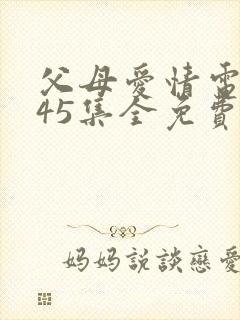 父母愛情電
45集全免費
妈妈説談戀愛